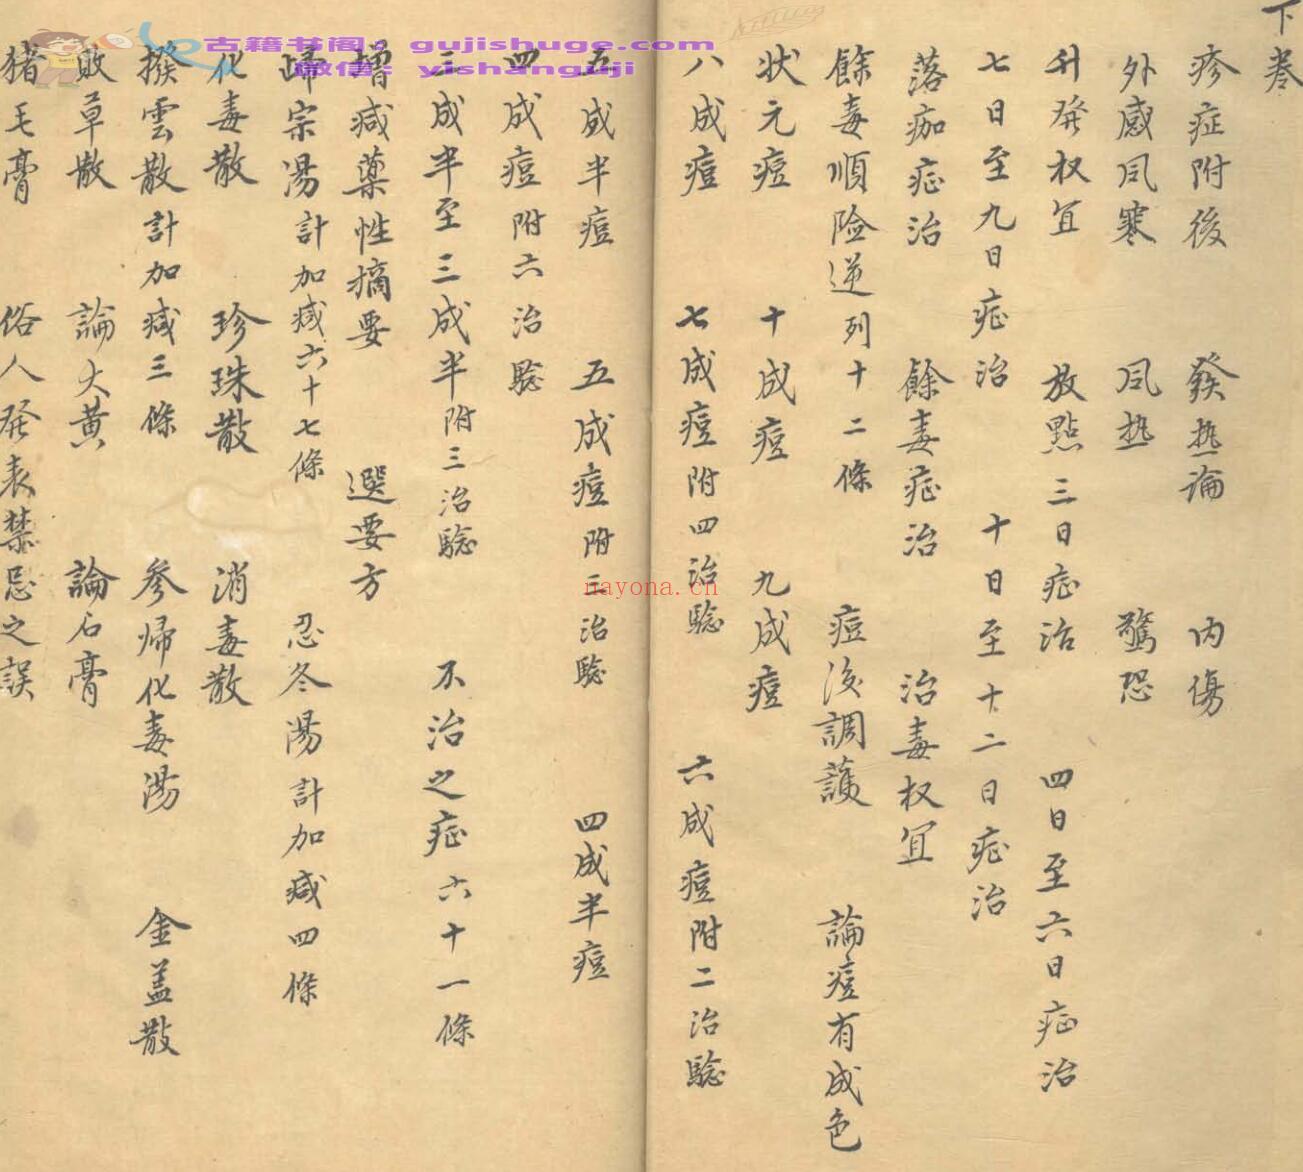 下卷
疹症附後 發热論 内傷
外感风寒 风热 驚恐
升発权宜 放點三日症治 四日至六日症治
七日至九日症治 十日至十二日症治
落痂症治 餘毒症治 治毒权宜
餘毒順险逆列十二條 痘後調護 論痘有成色
状元痘 十成痘 九成痘
八成痘 七成痘附四治騐 六成痘附二治騐
五成半痘 五成痘附三治騐 四成半痘
四成痘附六治騐
三成半至三成半附三治騐 不治之症六十一條
增减藥性摘要 選要方
歸宗湯計加减六十七條 忍冬湯計加减四條
化毒散 珍珠散 消毒散
撥雲散計加减三條 参歸化毒湯 金盖散
敗草散 論大黄 論石膏
猪毛膏 俗人発表禁忌之誤
古籍书阁：gujishuge.com
微信：yishanguji
nayona.cn